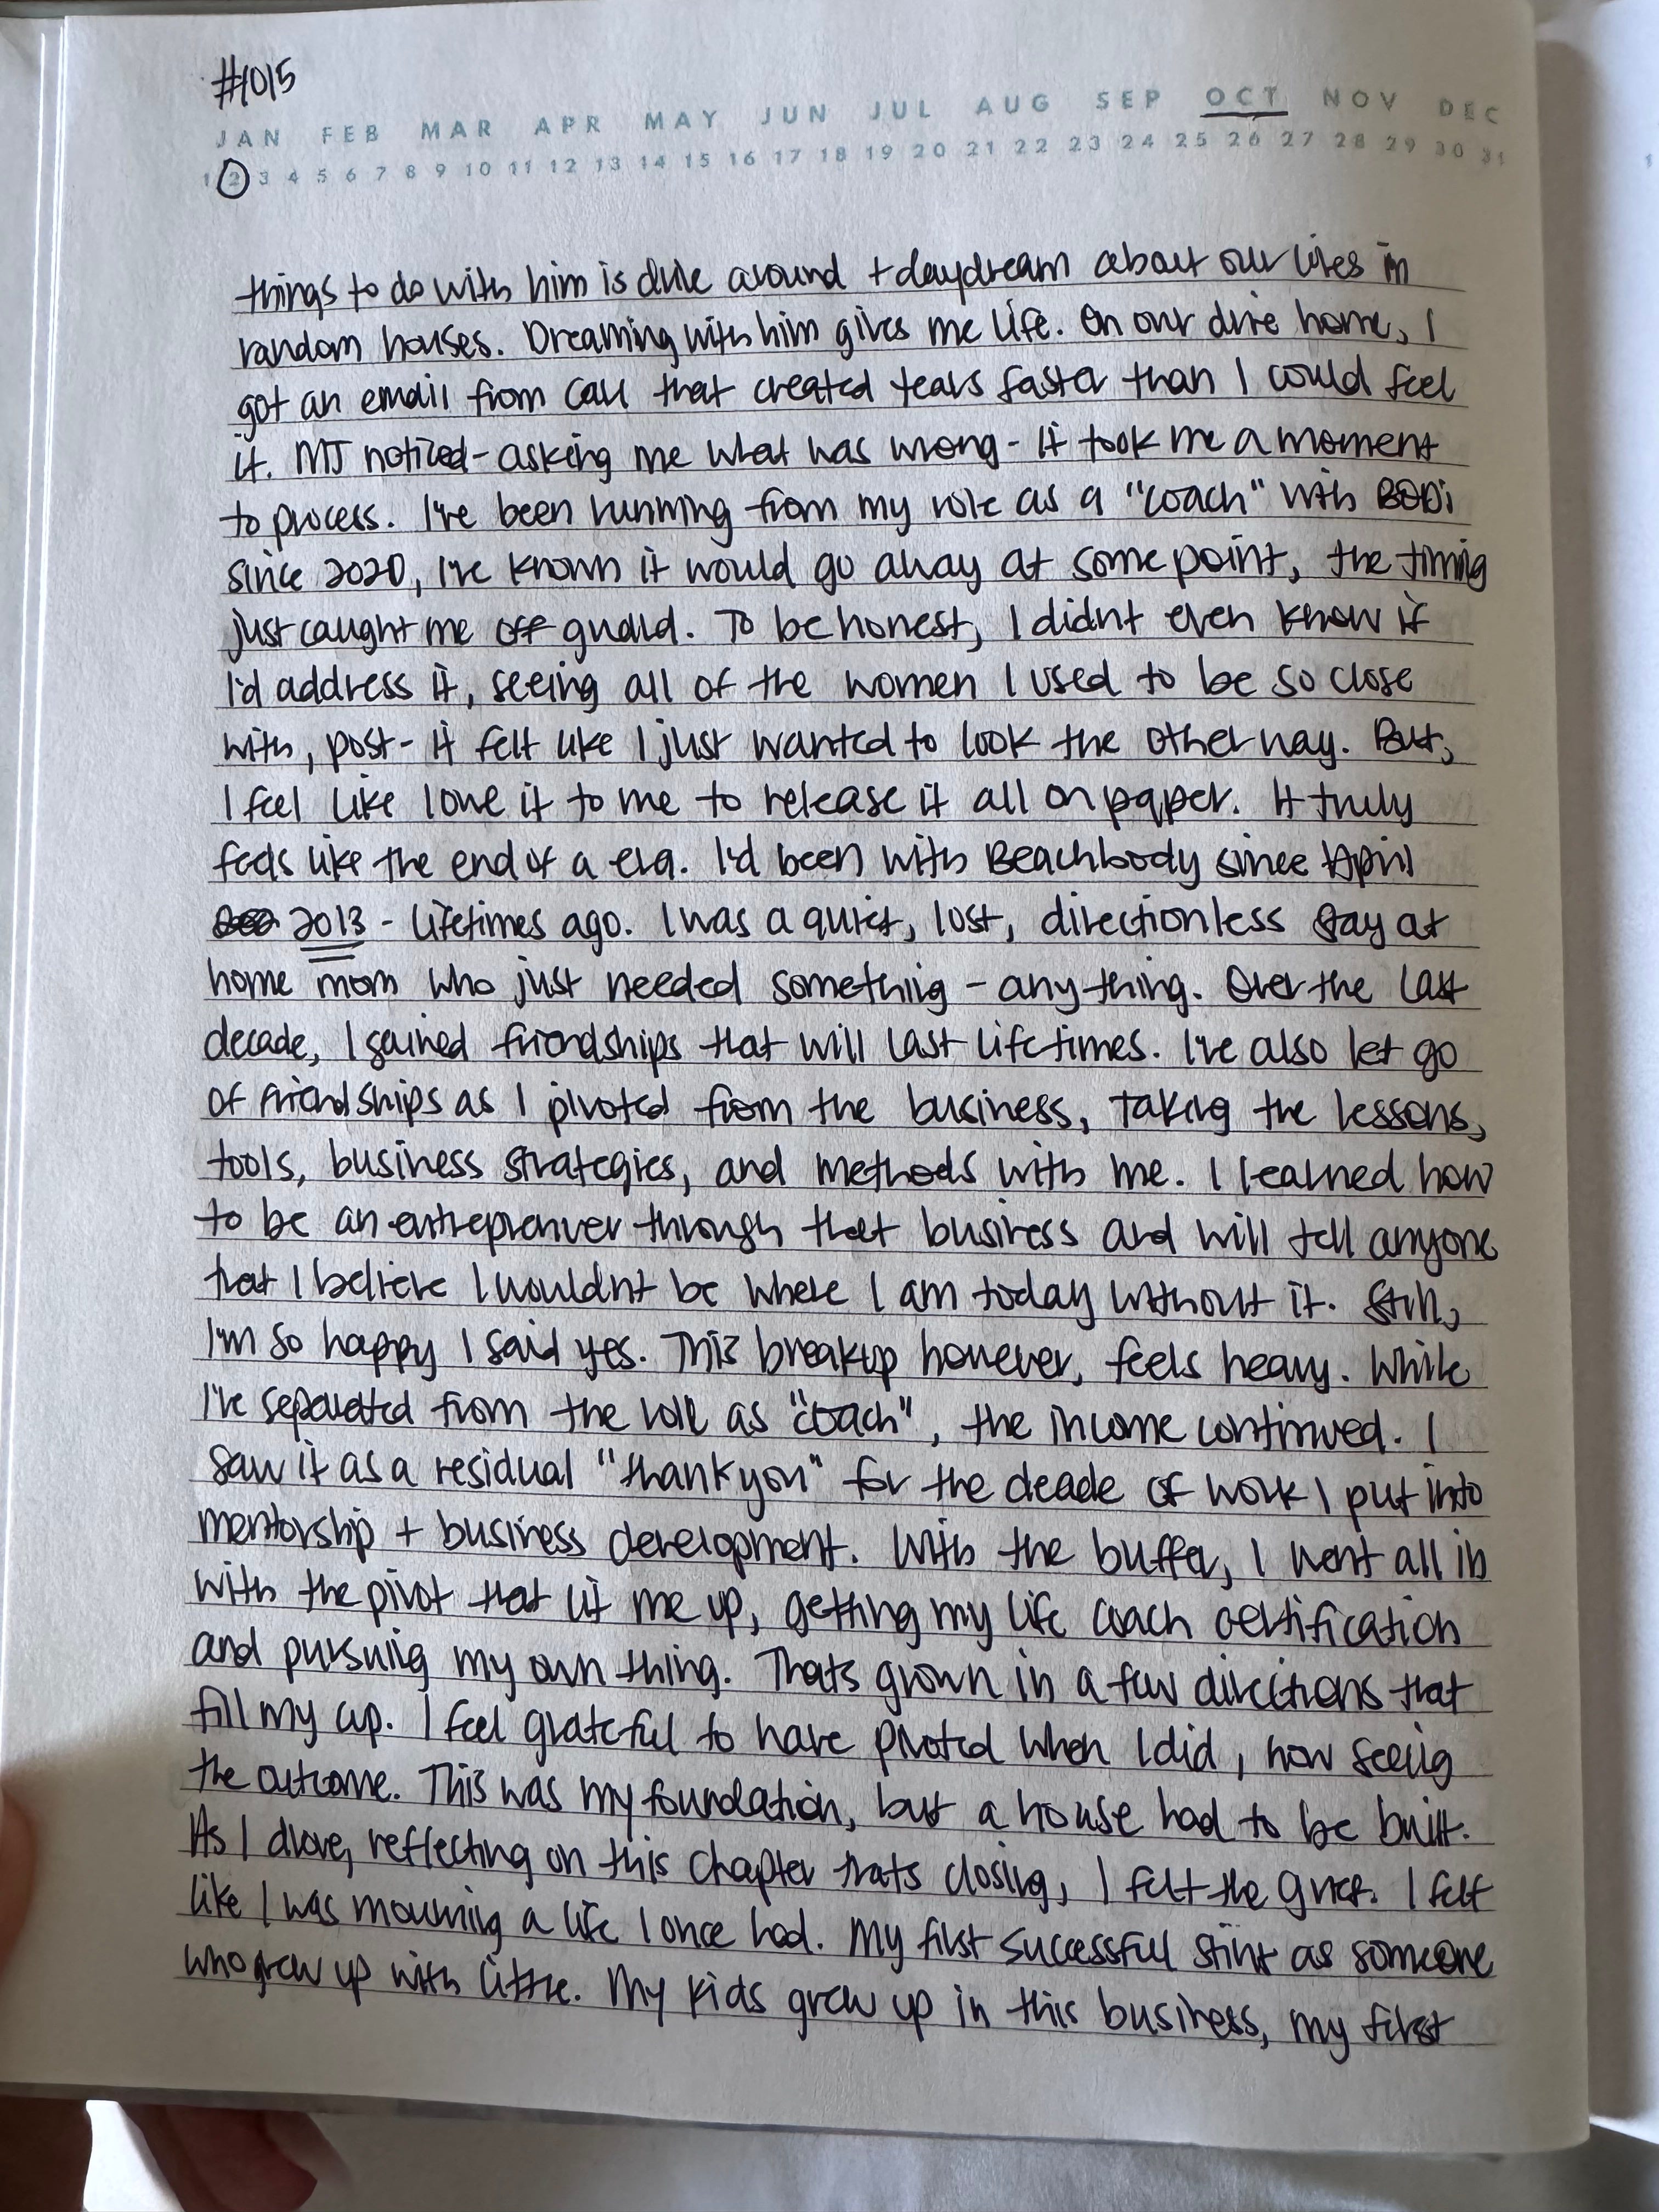 #1015
JAN FEB MAR APR MAY JUN JUL AUG SEP OCT NOV DEC
1 2 3 4 5 6 7 8 9 10 11 12 13 14 15 16 17 18 19 20 21 22 23 24 25 26 27 28 29 30 31
things to do with him is drive around + daydream about our lives in
random houses. Dreaming with him gives me life. On our drive home, I
got an email from Carl that created tears faster than I could feel
it. MJ noticed - asking me what was wrong - it took me a moment
to process. I've been running from my role as a "coach" with BODi
since 2020, I've known it would go away at some point, the timing
just caught me off guard. To be honest, I didnt even know if
I'd address it, seeing all of the women I used to be so close
with, post - it felt like I just wanted to look the other way. But,
I feel like I owe it to me to release it all on paper. It truly
feels like the end of a era. I'd been with Beachbody since April
2013 - lifetimes ago. I was a quiet, lost, directionless stay at
home mom who just needed something - anything. Over the last
decade, I gained friendships that will last lifetimes. I've also let go
of friendships as I pivoted from the business, taking the lessons,
tools, business strategies, and methods with me. I learned how
to be an entreprenuer through that business and will tell anyone
that I believe I wouldnt be where I am today without it. Still,
I'm so happy I said yes. This breakup however, feels heavy. While
I've separated from the role as "coach", the income continued. I
saw it as a residual "thank you" for the decade of work I put into
mentorship + business development. With the buffer, I went all in
with the pivot that lit me up, getting my life coach certification
and pursuing my own thing. Thats grown in a few directions that
fill my cup. I feel grateful to have pivoted when I did, now seeing
the outcome. This was my foundation, but a house had to be built.
As I drove, reflecting on this chapter thats closing, I felt the grief. I felt
like I was mourning a life I once had. My first successful stint as someone
who grew up with little. My kids grew up in this business, my first